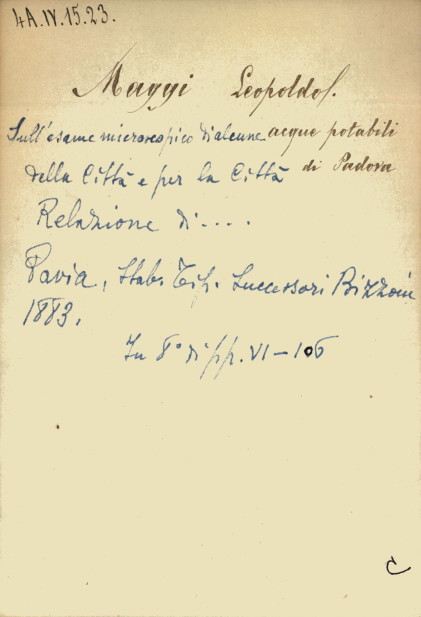 4A.IV.15.23.
Maggi Leopoldo.
Sull'esame microscopico di alcune acque potabili
della Città e per la Città di Padova
Relazione di....
Pavia, Stab. Tip. Successori Bizzoni
1883.
In 8° di pp. VI-106
C